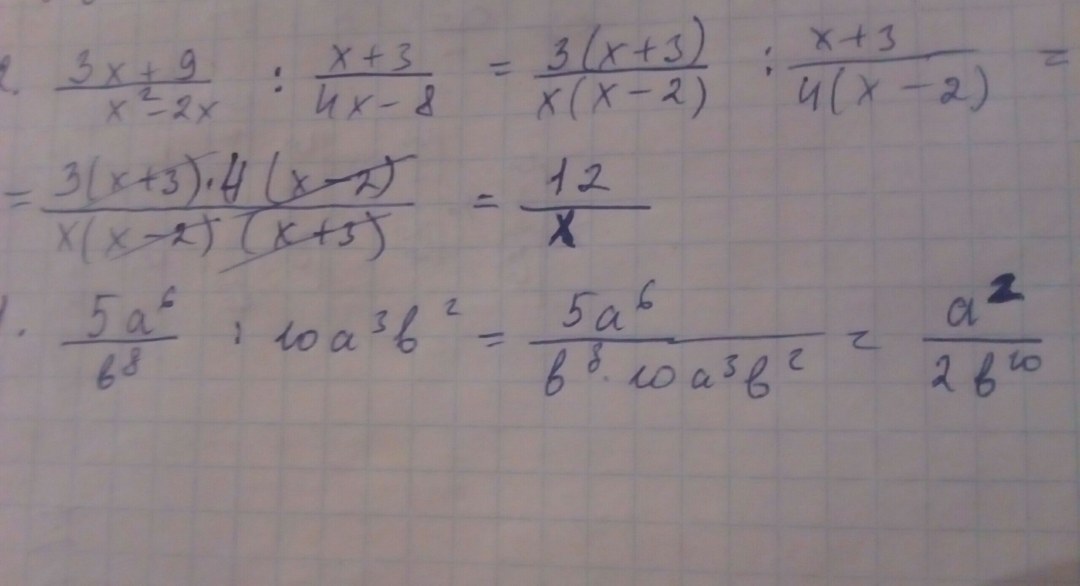 2. \frac{3x+9}{x^2-2x} : \frac{x+3}{4x-8} = \frac{3(x+3)}{x(x-2)} : \frac{x+3}{4(x-2)} =
= \frac{3(x+3) \cdot 4(x-2)}{x(x-2)(x+3)} = \frac{12}{x}
. \frac{5a^6}{b^8} : 10a^3b^2 = \frac{5a^6}{b^8 \cdot 10a^3b^2} = \frac{a^2}{2b^{10}}